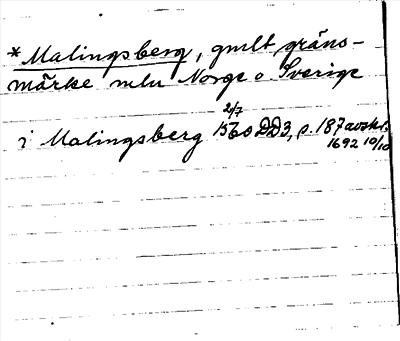 *Malingsberg, gmlt gräns-
märke mln Norge o Sverige
2/7
i Malingsberg 1560 DD3, s. 187 avskr.
1692 10/10